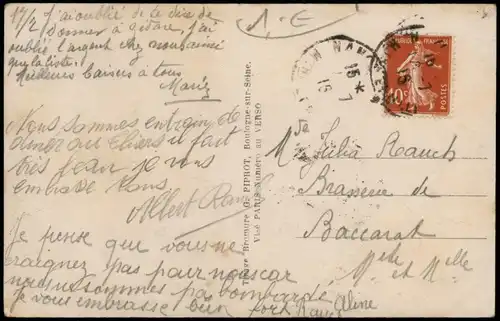 17/2 j'ai oublié de te dire de
donner à Gidare, j'ai
oublié l'argent chez nous ainsi
que la liste.
Meilleurs baisers à tous
Marie
Nous sommes en train de
diner au il fait
très beau je vous
embrasse tous
Albert
Je pense que vous ne
craignez pas pour nous car
nous ne sommes pas bombardé
je vous embrasse bien fort Aline
A. E.
NANCY
15 * 7
15
Tirage Bromure G. PIPROT, Boulogne-sur-Seine.
Visé PARIS Numéro au VERSO
10c
POSTES
Mr Julia Rauch
Brasserie de
Baccarat
Mthe et Mlle